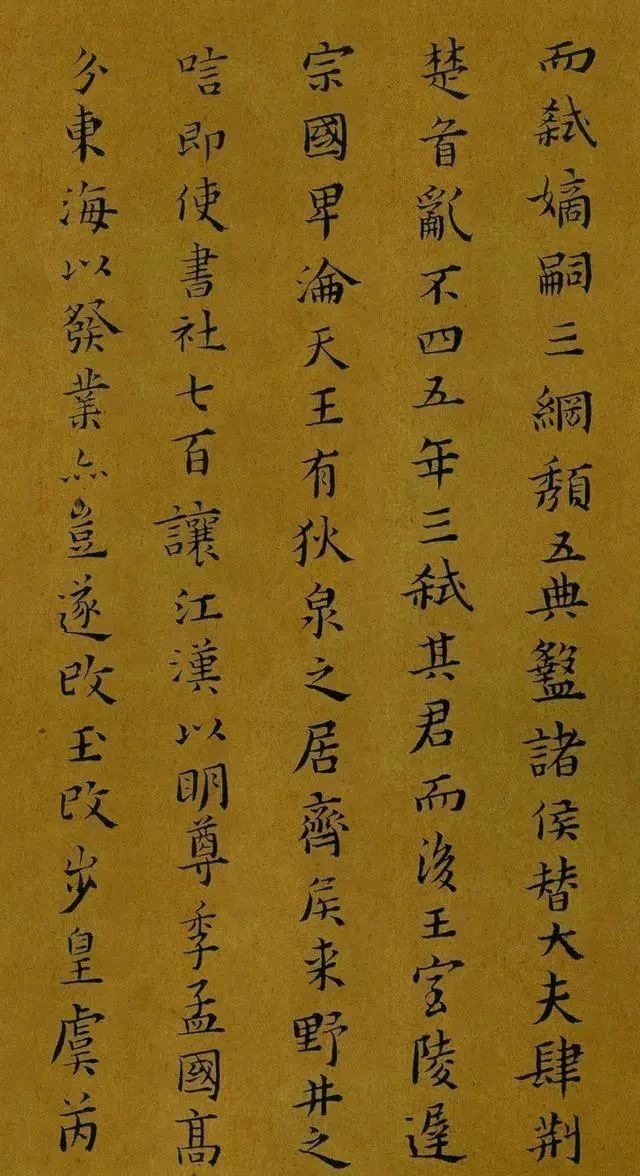 而弑嫡嗣三綱頽五典盭諸侯替大夫肆荆
楚首亂不四五年三弑其君而後王室陵遲
宗國卑淪天王有狄泉之居齊侯来野井之
唁即使書社七百讓江漢以明尊季孟國高
分東海以發業亦豈遂改玉改步皇虞芮